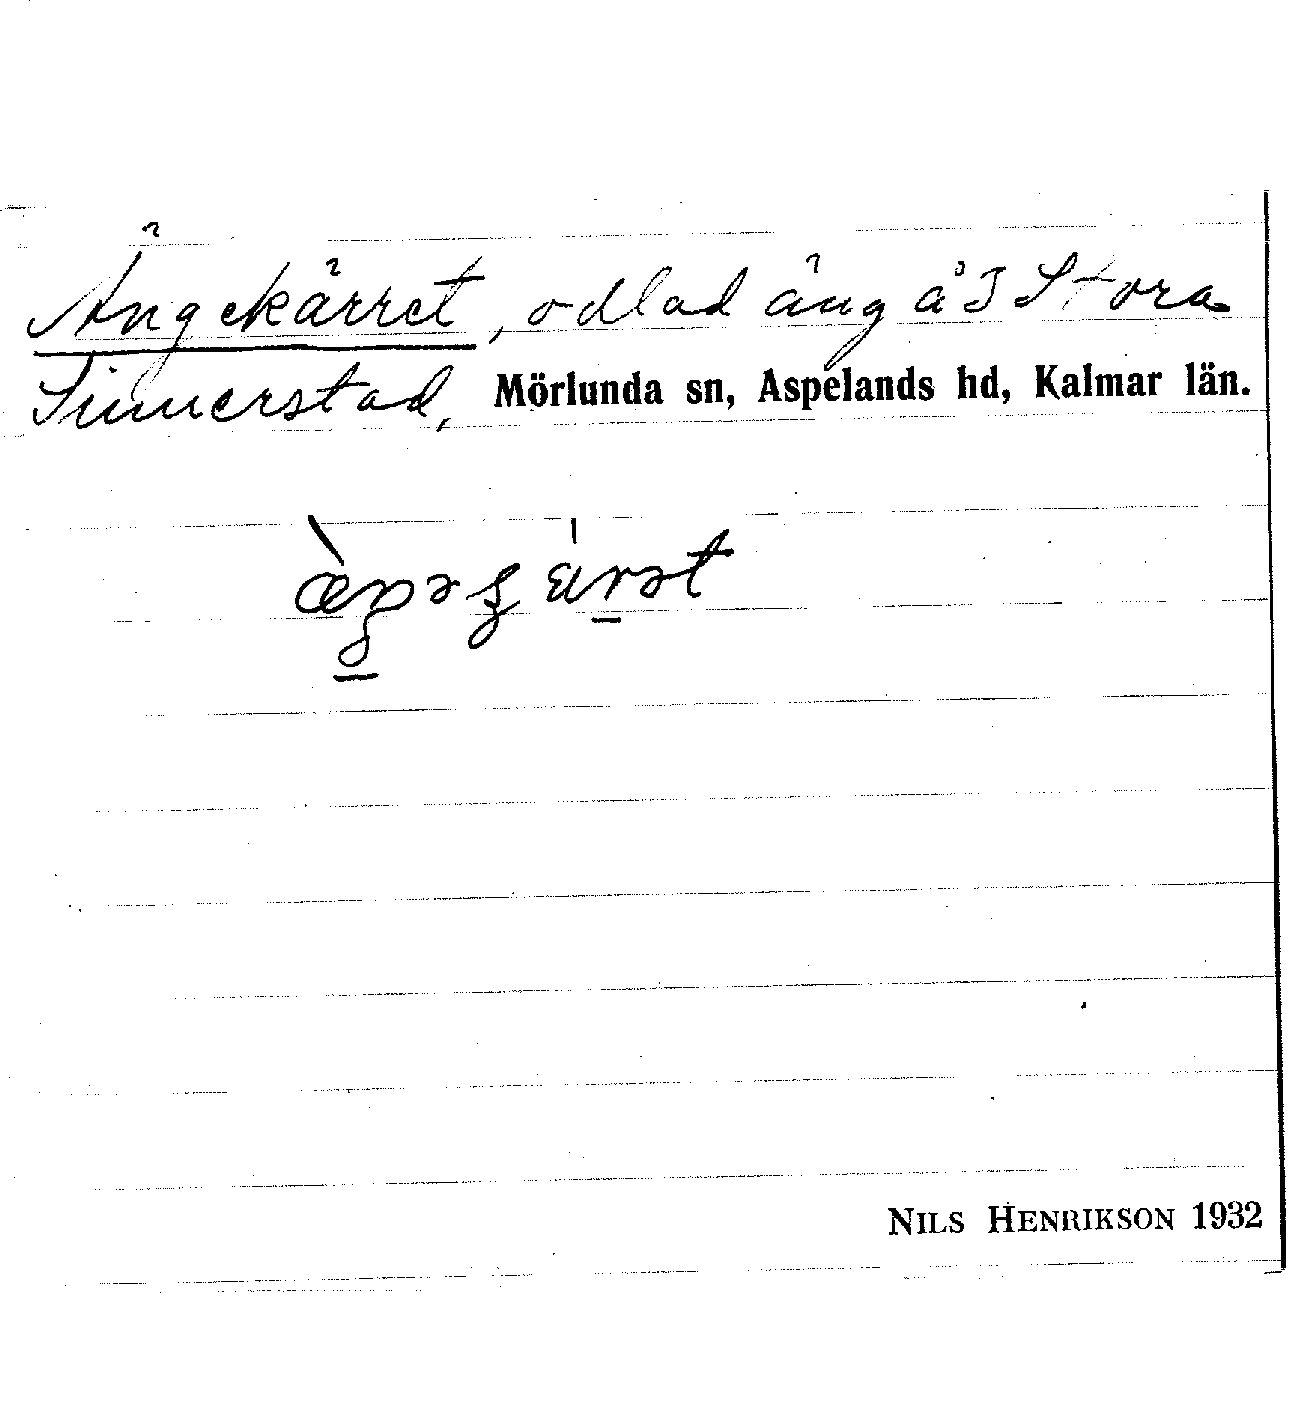 Ängekärret, odlad äng å 3 Stora
Simmerstad, Mörlunda sn, Aspelands hd, Kalmar län.
NILS HENRIKSON 1932